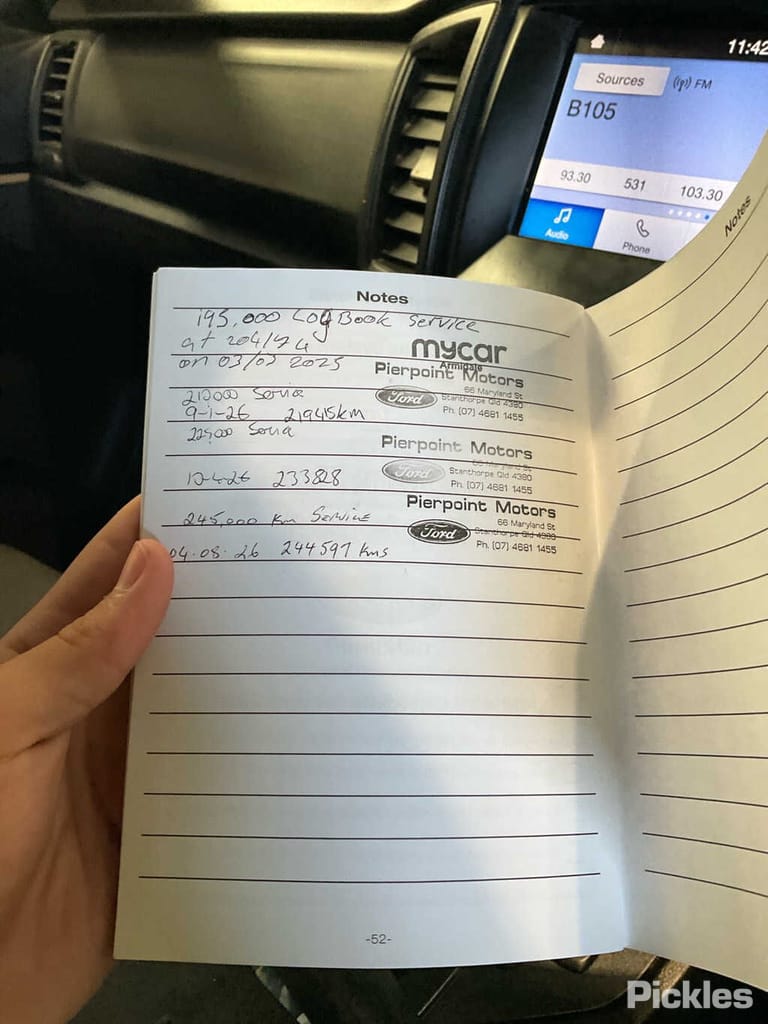 11:42
Sources
FM
B105
93.30 531 103.30
Audio Phone
Notes
Notes
195,000 LogBook Service
at 204174
on 03/07 2025
mycar
Armidale
Pierpoint Motors
Ford
66 Maryland St
Stanthorpe Qld 4380
Ph. (07) 4681 1455
210000 Service
9-1-26 21945km
225,000 Service
Pierpoint Motors
Ford
66 Maryland St
Stanthorpe Qld 4380
Ph. (07) 4681 1455
233828
245,000 km Service
04.08.26 244597 kms
Pierpoint Motors
Ford
66 Maryland St
Stanthorpe Qld 4380
Ph. (07) 4681 1455
-52-
Pickles